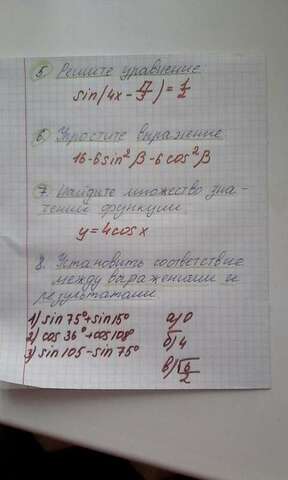 5. Решите уравнение
sin(4x - π/3) = 1/2
6. Упростите выражение
16-6sin²β-6cos²β
7. Найдите множество зна-
чений функции
y=4cosx
8. Установить соответствие
между выражениями и
результатами
1) sin 75°+sin15° а) 0
2) cos 36°+cos108° б) 4
3) sin 105-sin 75° в) √6/2